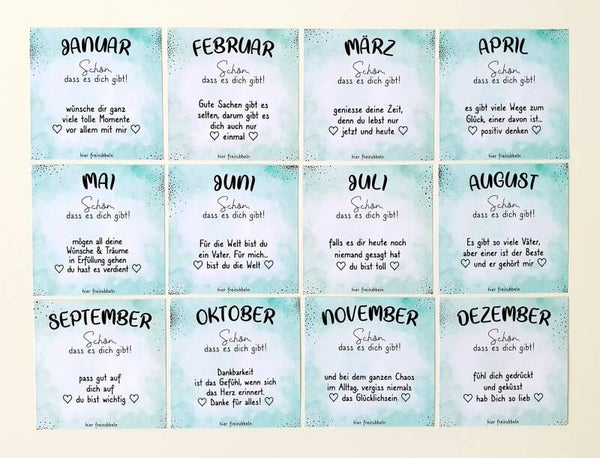 JANUAR
Schön,
dass es dich gibt!
wünsche dir ganz
viele tolle Momente
♡ vor allem mit mir ♡
hier freirubbeln
FEBRUAR
Schön,
dass es dich gibt!
Gute Sachen gibt es
selten, darum gibt es
dich auch nur
♡ einmal ♡
hier freirubbeln
MÄRZ
Schön,
dass es dich gibt!
geniesse deine Zeit,
denn du lebst nur
♡ jetzt und heute ♡
hier freirubbeln
APRIL
Schön,
dass es dich gibt!
es gibt viele Wege zum
Glück, einer davon ist..
♡ positiv denken ♡
hier freirubbeln
MAI
Schön,
dass es dich gibt!
mögen all deine
Wünsche & Träume
in Erfüllung gehen
♡ du hast es verdient ♡
hier freirubbeln
JUNI
Schön,
dass es dich gibt!
Für die Welt bist du
ein Vater. Für mich..
♡ bist du die Welt ♡
hier freirubbeln
JULI
Schön,
dass es dich gibt!
falls es dir heute noch
niemand gesagt hat
♡ du bist toll ♡
hier freirubbeln
AUGUST
Schön,
dass es dich gibt!
Es gibt so viele Väter,
aber einer ist der Beste
♡ und er gehört mir ♡
hier freirubbeln
SEPTEMBER
Schön,
dass es dich gibt!
pass gut auf
dich auf
♡ du bist wichtig ♡
hier freirubbeln
OKTOBER
Schön,
dass es dich gibt!
Dankbarkeit
ist das Gefühl, wenn sich
das Herz erinnert.
♡ Danke für alles! ♡
hier freirubbeln
NOVEMBER
Schön,
dass es dich gibt!
und bei dem ganzen Chaos
im Alltag, vergiss niemals
♡ das Glücklichsein ♡
hier freirubbeln
DEZEMBER
Schön,
dass es dich gibt!
fühl dich gedrückt
und geküsst
♡ hab Dich so lieb ♡
hier freirubbeln